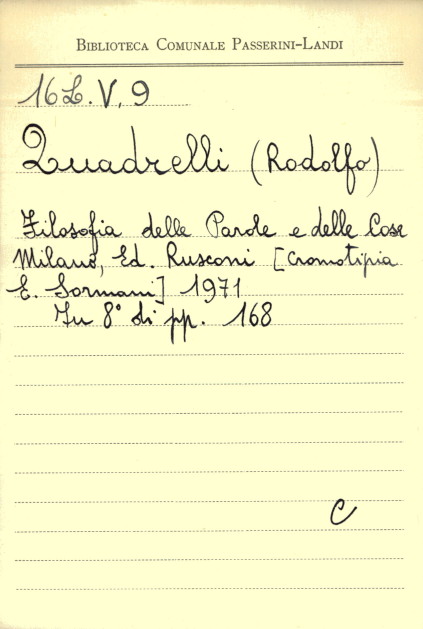 BIBLIOTECA COMUNALE PASSERINI-LANDI
16L.V.9
Quadrelli (Rodolfo)
Filosofia delle Parole e delle Cose
Milano, Ed. Rusconi [Cromotipia
E. Sormani] 1971
In 8° di pp. 168
C